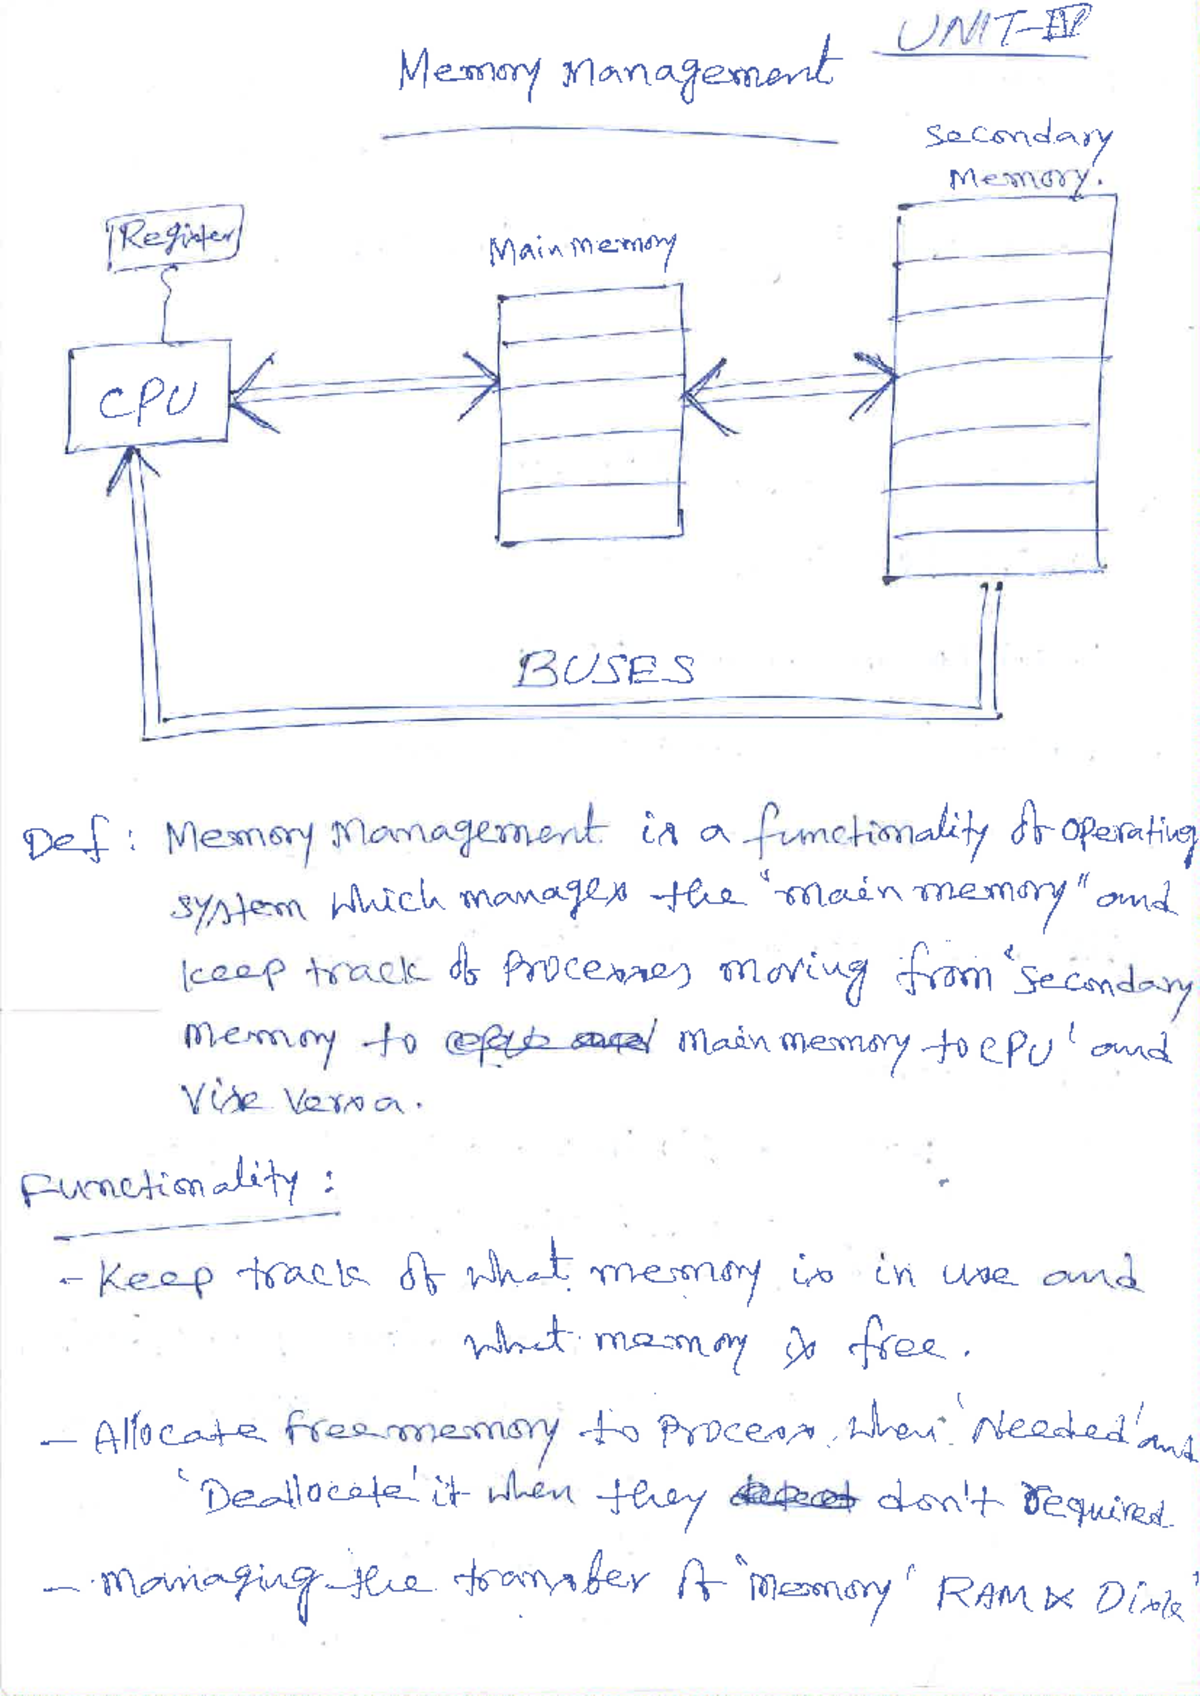 UNIT-IV
Memory Management
Secondary
Memory.
Register
Main memory
CPU
BUSES
Def: Memory Management is a functionality of operating
system which manages the "main memory" and
keep track of Processes moving from 'Secondary
memory to main memory to CPU' and
Vise Versa.
Functionality:
- Keep track of what memory is in use and
what memory is free.
- Allocate free memory to Process when 'Needed' and
'Deallocate' it when they don't required
- Managing the transfer of 'Memory' RAM & Disk'